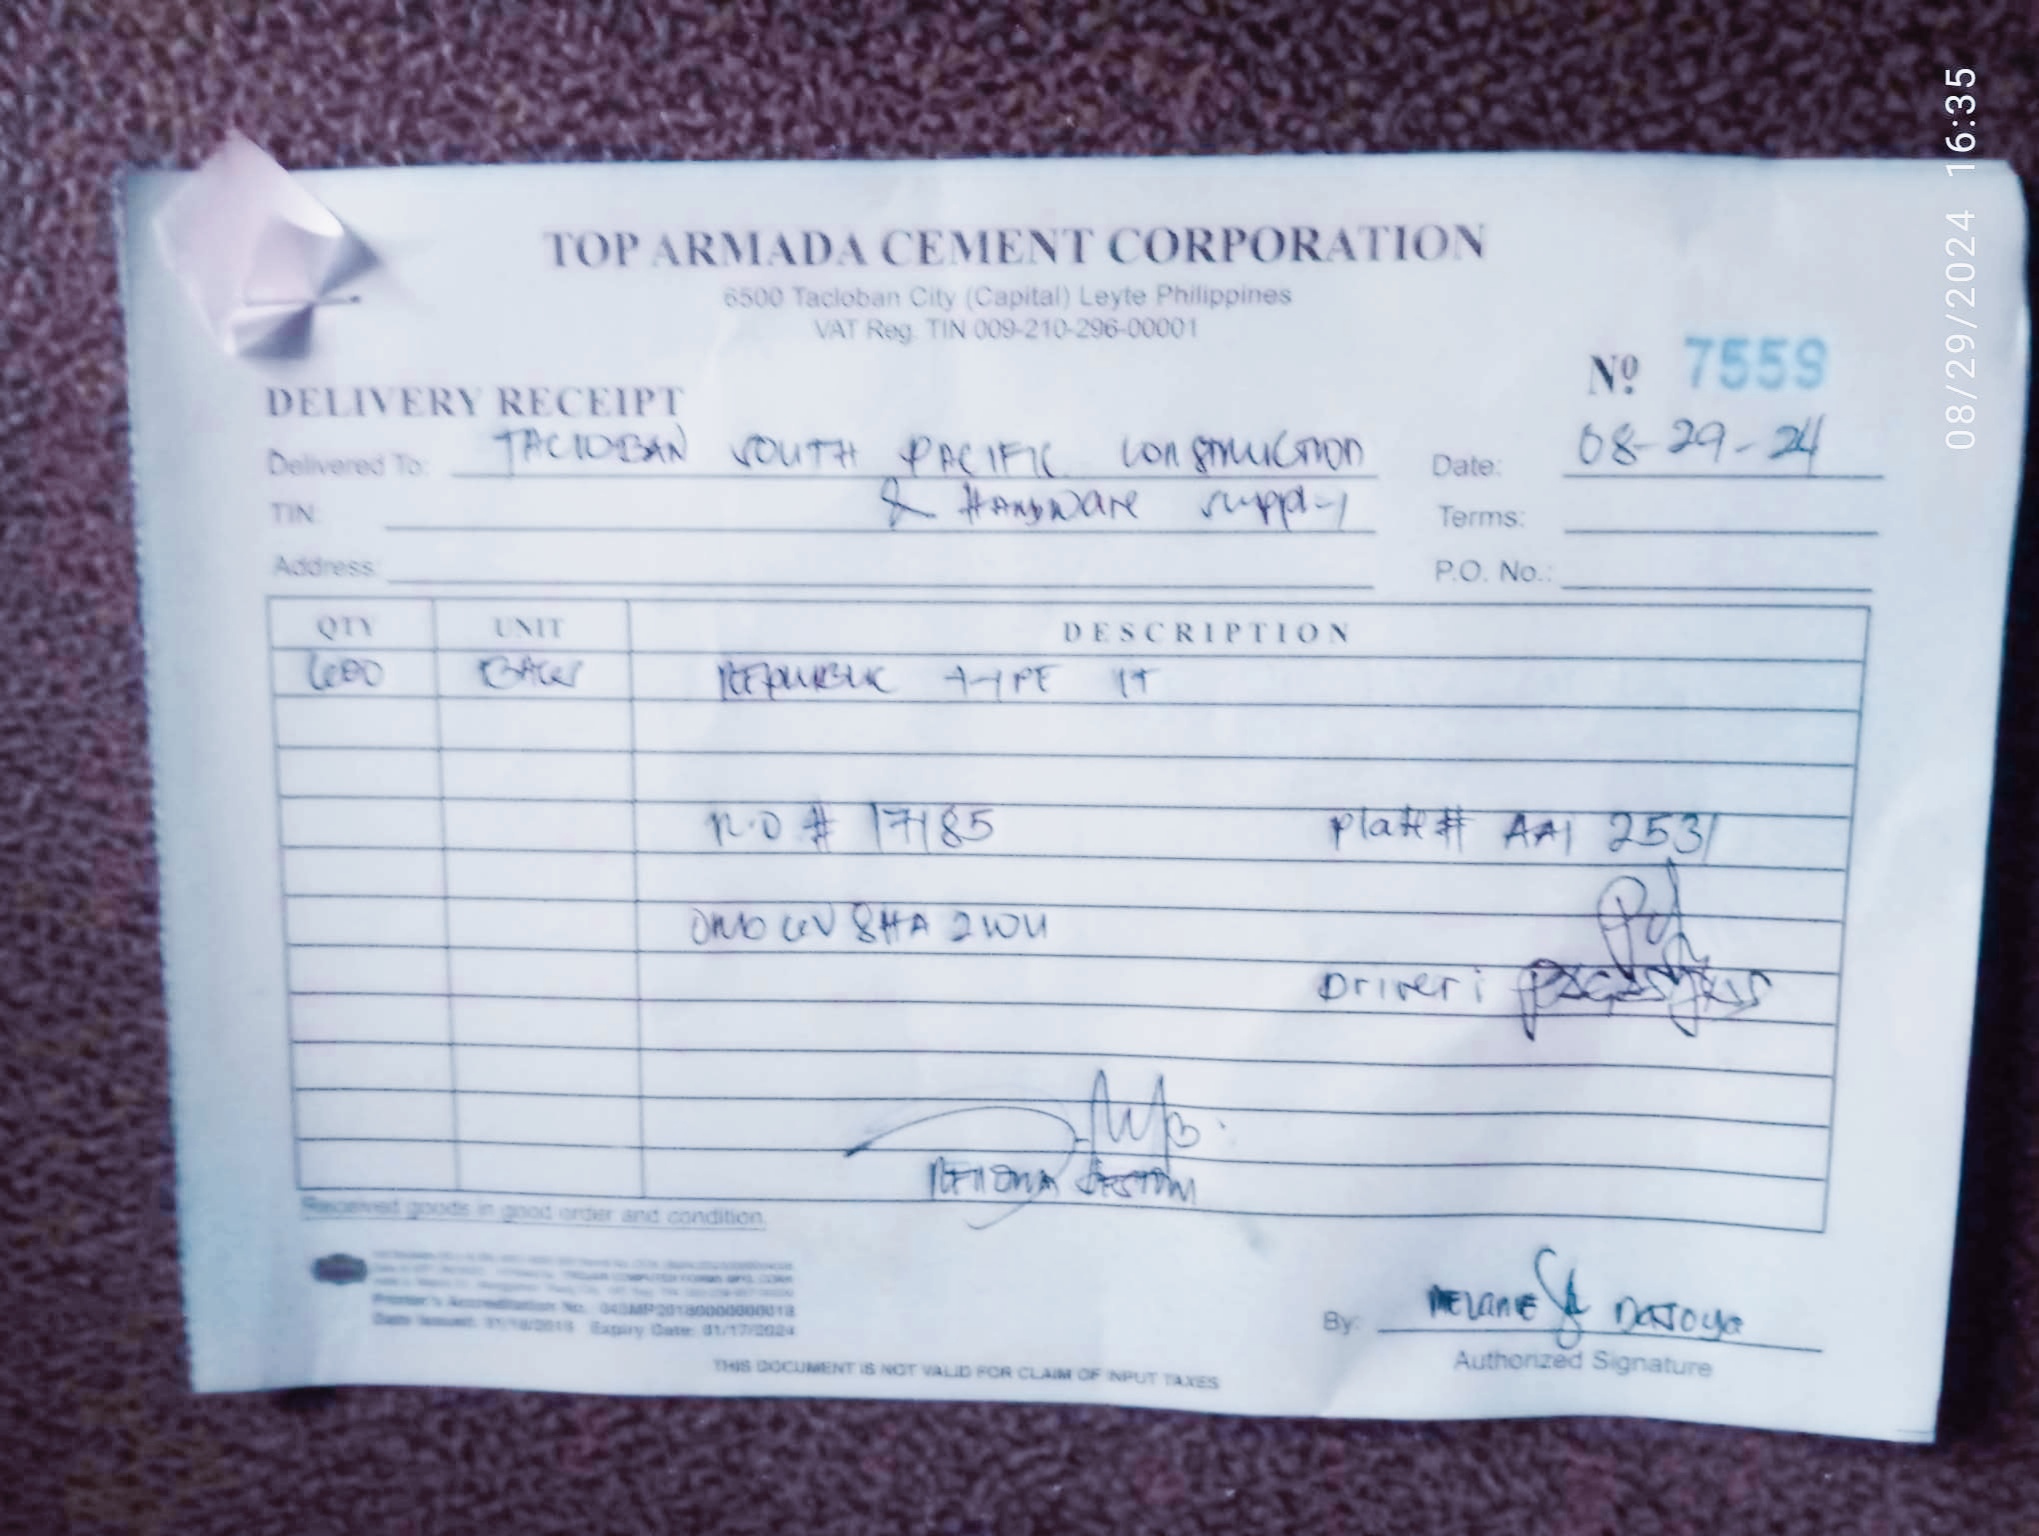 08/29/2024 16:35
TOP ARMADA CEMENT CORPORATION
6500 Tacloban City (Capital) Leyte Philippines
VAT Reg. TIN 009-210-296-00001
Nº 7559
DELIVERY RECEIPT
Delivered To: TACLOBAN SOUTH PACIFIC CONSTRUCTION Date: 08-29-24
TIN: & HARDWARE supply Terms:
Address: P.O. No.:
QTY UNIT DESCRIPTION
600 BAGS REPUBLIC TYPE 1T
# 17185 Plate# AAI 2531
Driver:
Received goods in good order and condition.
Printer's Accreditation No. 043MP20180000000018
Expiry Date: 01/17/2024
By: MELANIE DATOYA
Authorized Signature
THIS DOCUMENT IS NOT VALID FOR CLAIM OF INPUT TAXES